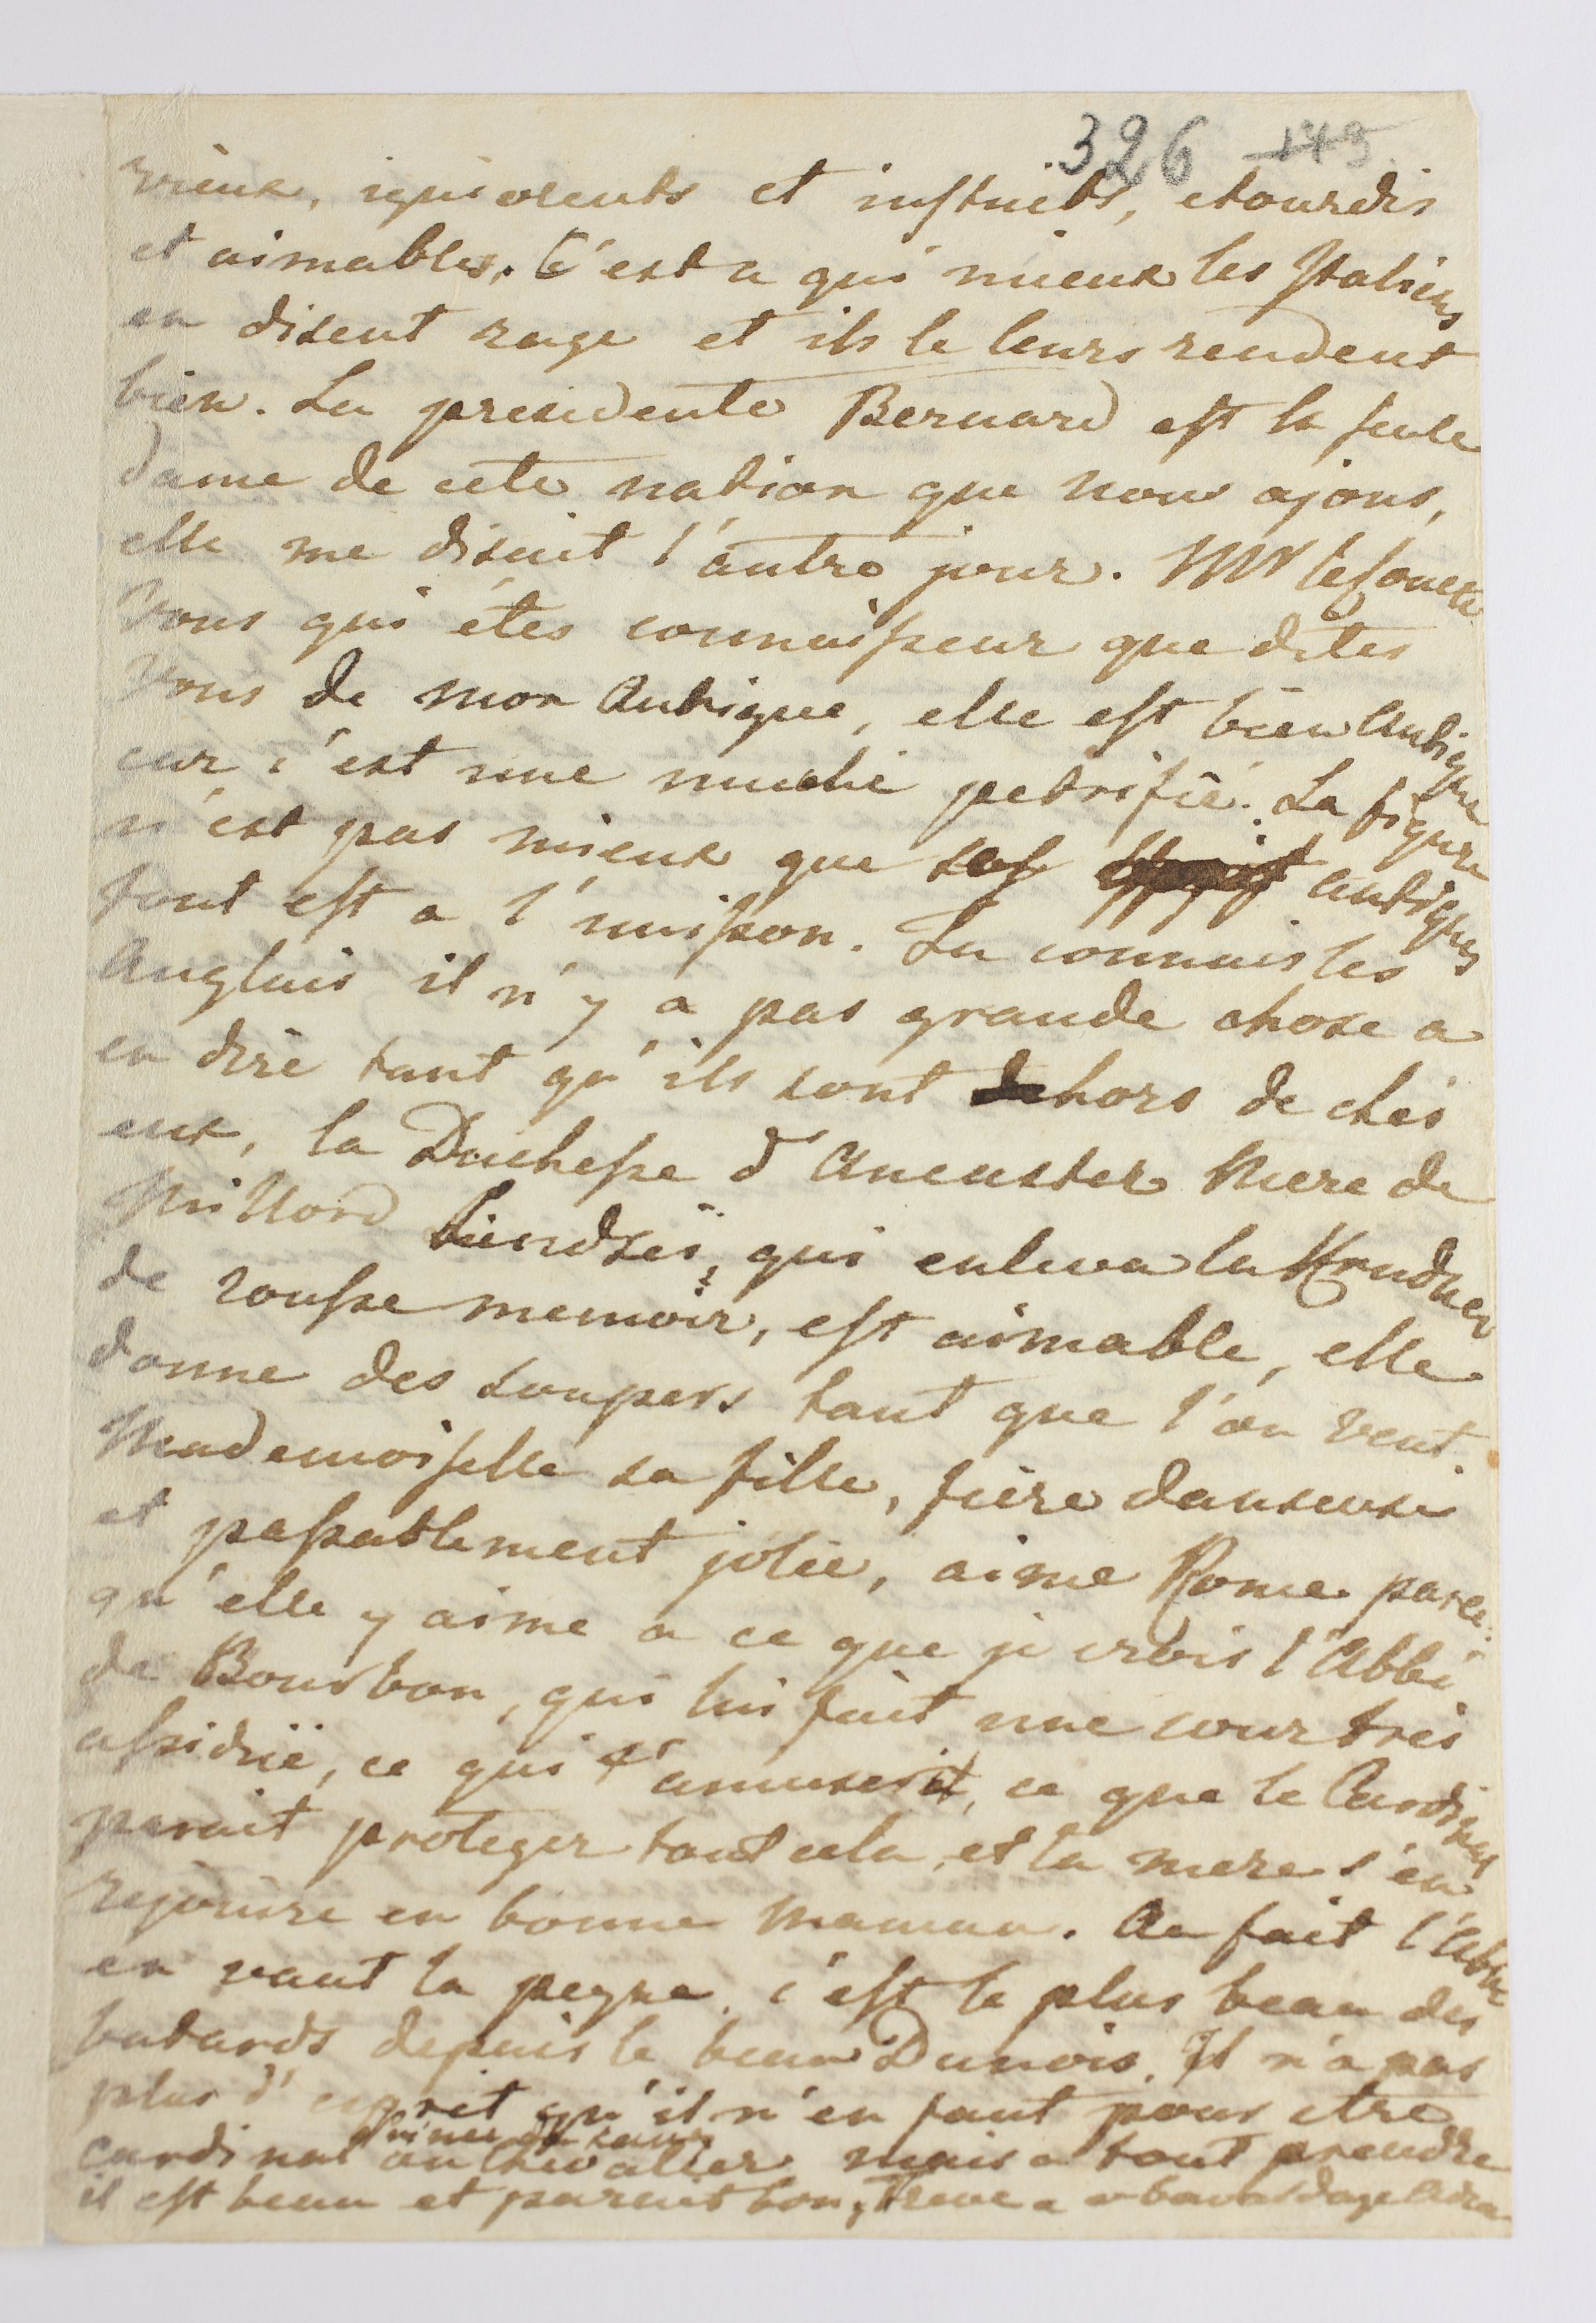 326 149
rieux, ignorents et instruits, etourdis
et aimables. C'est a qui mieux les Italiens
en disent rage et ils le leurs rendent
bien. La presidente Bernard est la seule
dame de cete nation que nous ajons,
elle me disait l'autre jour. Mr le Comte
Vous qui étes connaisseur que dites
Vous de mon Antique, elle est bien Antique
car c'est une petrifié. La figure
n'est pas mieux que ses antiques
tout est a l'unisson. Tu connais les
Anglais il n'y a pas grande chose a
en dire tant qu'ils sont hors de chés
eux, la Duchesse d'Ancaster Mere de
Millord Lindseï, qui enleva la Krudner
de rousse memoir, est aimable, elle
donne des soupers tant que l'on veut.
Mademoiselle sa fille, fiere danseuse
et passablement jolie, aime Rome parce
qu'elle y aime a ce que je crois l'Abbé
de Bourbon, qui lui fait une cour trés
assiduë, ce qui l'amuserit, ce que le Cardinal
parait proteger tout cela, et la mere s'en
rejouire en bonne Maman. Au fait l'Abbé
en vaut la peyne, c'est le plus beau des
batards depuis le beau Dunois. Il n'a pas
plus d'esprit qu'il n'en faut pour etre
prince du sang
cardinal ou chevalier mais a tout prendre
il est beau et parait bon, Treve a bavardage